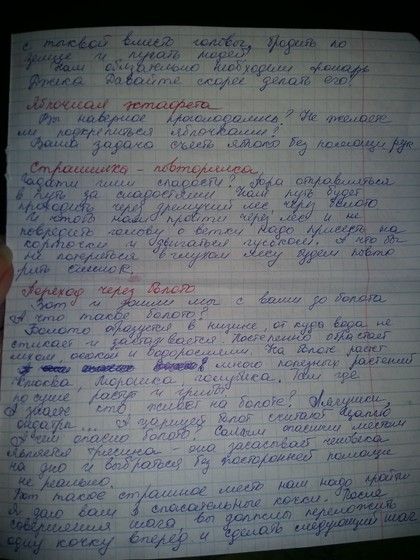 с тыквой вместо головы, бродить по
земле и пугать людей.
Нам обязательно необходим фонарь
Джека Давайте скорее делать его!
Яблочная эстафета
Вы наверное проголодались? Не желаете
ли подкрепиться яблочками?
Ваша задача съесть яблоко без помощи рук
Страшилка - повторялка
Гадости или сладости? Пора отправляться
в путь за сладостями Наш путь будет
проходить через дремучий лес через болото
И чтобы нам пройти через лес и не
повредить голову о ветки надо присесть на
корточки и двигаться гуськом. А что бы
не потеряться в глухом лесу будем повто
рять
Переход через болото
Вот и дошли мы с вами до болота
А что такое болото?
Болото образуется в низине, от куда вода не
стекает и застаивается. Постепенно обрастает
мхом осокой и водорослями. На болоте растет
много полезных растений
клюква, морошка, голубика. Там где
по суше растут и грибы.
А знаете кто живет на болоте? Лягушки,
ондатры... А царицей болот считают цаплю
А чем опасно болото? Самым опасным местом
является трясина - она засасывает человека
на дно и выбраться без посторонней помощи
не реально.
Вот такое страшное место нам надо пройти
Я даю вам 2 спасательные кочки. После
совершения шага, вы должны переложить
одну кочку вперед и сделать следующий шаг